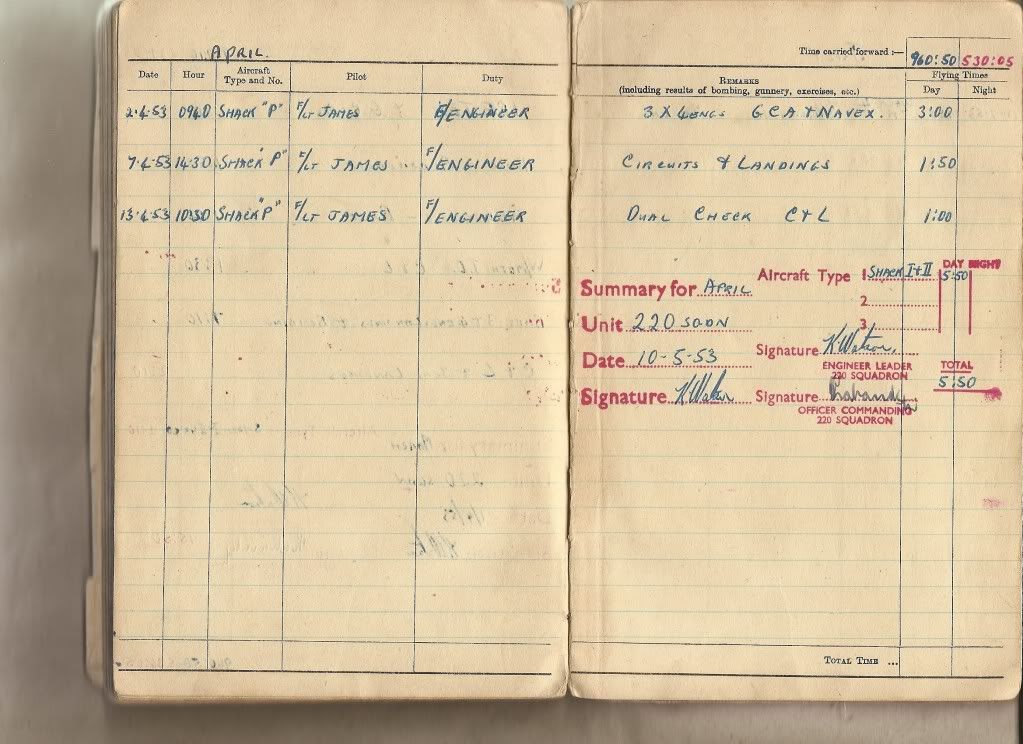 APRIL.
Date Hour Aircraft Type and No. Pilot Duty
2.4.53 0940 SHACK "P" F/LT JAMES F/ENGINEER
7.4.53 1430 SHACK "P" F/LT JAMES F/ENGINEER
13.4.53 1030 SHACK "P" F/LT JAMES F/ENGINEER
Time carried forward :— 960:50 530:05
REMARKS Flying Times
(including results of bombing, gunnery, exercises, etc.) Day Night
3 X 4 ENGS GCA + NAVEX. 3:00
CIRCUITS & LANDINGS 1:50
DUAL CHECK C & L 1:00
DAY NIGHT
Summary for APRIL Aircraft Type 1 SHACK I & II 5:50
2
Unit 220 SQDN 3
Date 10-5-53 Signature K Watson.
ENGINEER LEADER TOTAL
220 SQUADRON 5:50
Signature K Watson Signature
OFFICER COMMANDING
220 SQUADRON
TOTAL TIME ...